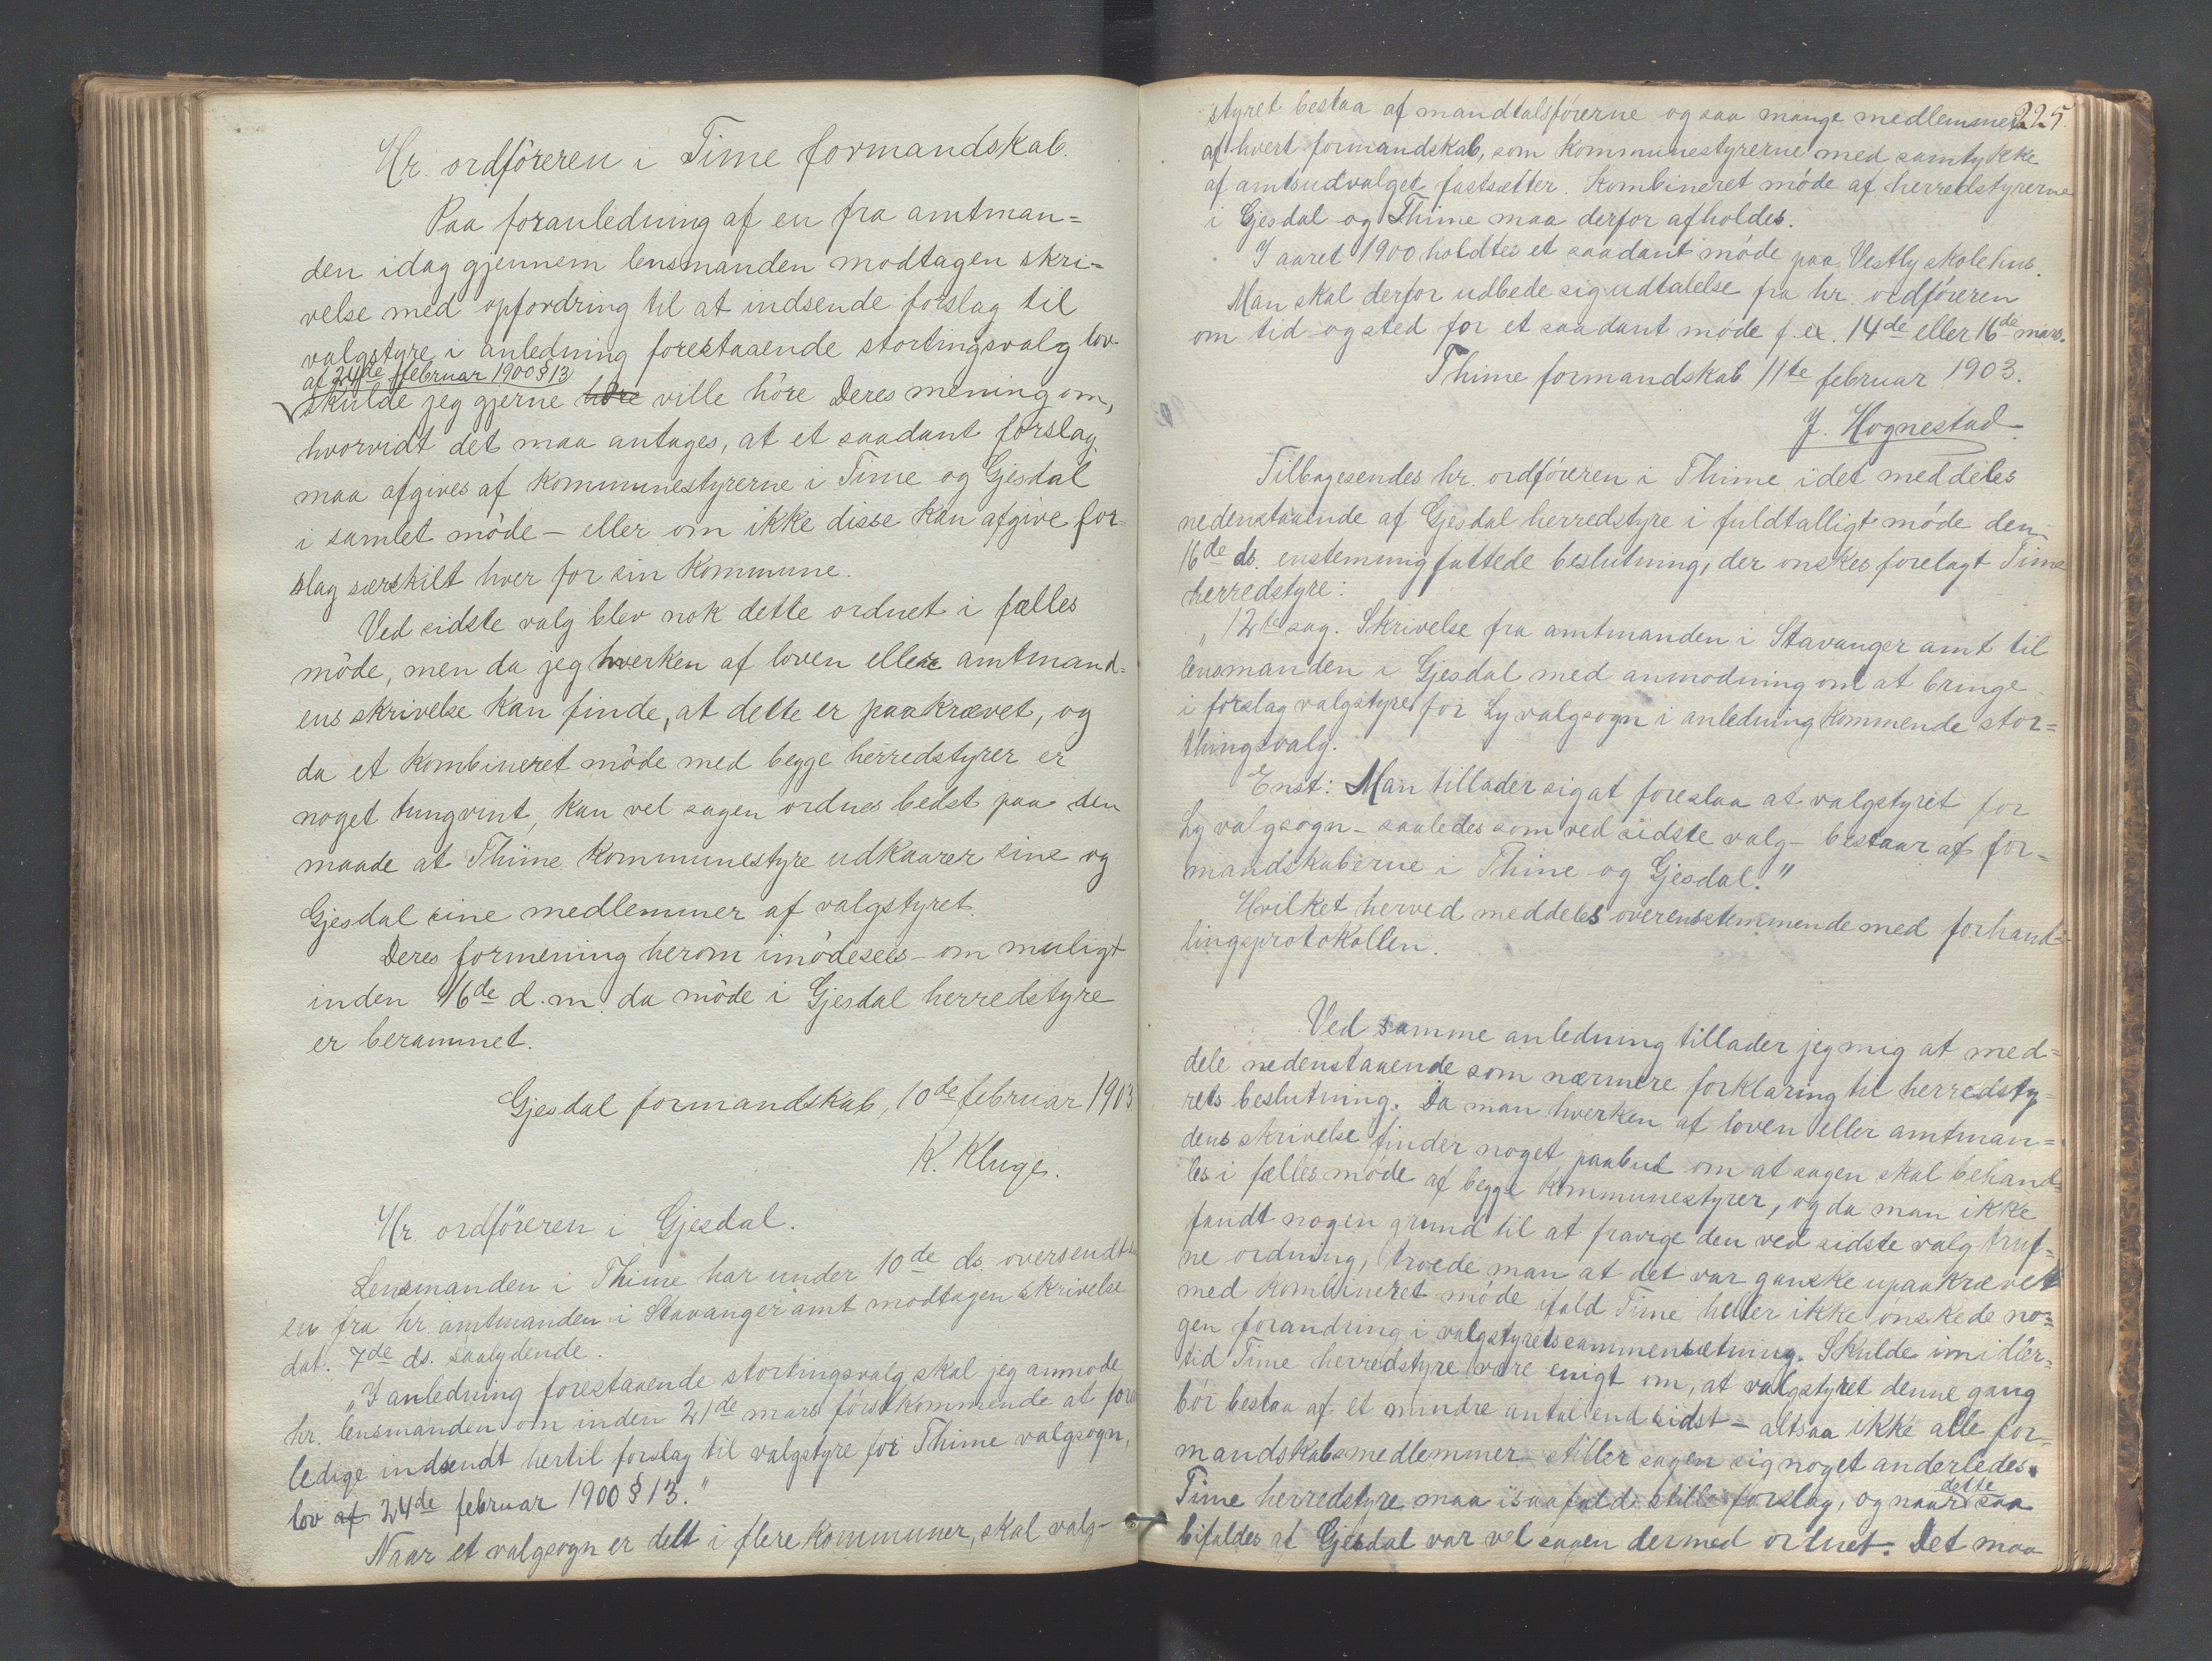 Hr. ordföreren i Time formandskab.
Paa foranledning af en fra amtman=
den idag gjennem lensmanden modtagen skri=
velse med opfordring til at indsende forslag til
valgstyre i anledning forestaaende stortingsvalg lov
af 24de februar 1900 § 13
skulde jeg gjerne höre ville höre Deres mening om,
hvorvidt det maa antages, at et saadant forslag
maa afgives af kommunestyrerne i Time og Gjesdal
i samlet möde – eller om ikke disse kan afgive for=
slag særskilt hver for sin kommune.
Ved sidste valg blev nok dette ordnet i fælles
möde, men da jeg hverken af loven eller amtmand=
ens skrivelse kan finde, at dette er paakrævet, og
da et kombineret möde med begge herredstyrer er
noget tungvint, kan vel sagen ordnes bedst paa den
maade at Thime kommunestyre udkaarer sine og
Gjesdal sine medlemmer af valgstyret.
Deres formening herom imödesees – om muligt
inden 16de d.m. da möde i Gjesdal herredstyre
er berammet.
Gjesdal formandskab, 10de februar 1903
K. Kluge.
Hr. ordföreren i Gjesdal.
Lensmanden i Thime har under 10de ds. oversendt
en fra hr. amtmanden i Stavanger amt modtagen skrivelse
dat. 7de ds. saalydende.
"I anledning forestaaende stortingsvalg skal jeg anmode
hr. lensmanden om inden 21de mars förstkommende at foran
ledige indsendt hertil forslag til valgstyre for Thime valgsogn,
lov af 24de februar 1900 § 13."
Naar et valgsogn er delt i flere kommuner, skal valg-
225.
styret bestaa af mandtalsförerne og saa mange medlemmer
af hvert formandskab, som kommunestyrerne med samtykke
af amtsudvalget fastsætter. Kombineret möde af herredstyrerne
i Gjesdal og Thime maa derfor afholdes.
I aaret 1900 holdtes et saadant möde paa Vestly skolehus.
Man skal derfor udbede sig udtalelse fra hr. ordföreren
om tid og sted for et saadant möde f. ex. 14de eller 16de mars.
Thime formandskab 11te februar 1903.
J. Hognestad
Tilbagesendes hr. ordföreren i Thime idet meddeles
nedenstaaende af Gjesdal herredstyre i fuldtalligt möde den
16de ds. enstemmig fattede beslutning, der önskes forelagt Time
herredstyre:
"12te sag. Skrivelse fra amtmanden i Stavanger amt til
lensmanden i Gjesdal med anmodning om at bringe
i forslag valgstyre for Ly valgsogn i anledning kommende stor=
thingsvalg.
Enst: Man tillader sig at foreslaa at valgstyret for
Ly valgsogn – saaledes som ved sidste valg – bestaar af for=
mandskaberne i Thime og Gjesdal."
Hvilket herved meddeles overensstemmende med forhand=
lingsprotokollen.
Ved samme anledning tillader jeg mig at med=
dele nedenstaaende som nærmere forklaring til herredsty=
rets beslutning. Da man hverken af loven eller amtman=
dens skrivelse finder noget paabud om at sagen skal behand=
les i fælles möde af begge kommunestyrer, og da man ikke
fandt nogen grund til at fravige den ved sidste valg truf=
ne ordning, troede man at det var ganske upaakrævet
med kombineret möde ifald Time heller ikke önskede no=
gen forandring i valgstyrets sammensætning. Skulde imidler=
tid Time herredstyre være enigt om, at valgstyret denne gang
bör bestaa af et mindre antal end sidst – altsaa ikke alle for=
mandskabsmedlemmer – stiller sagen sig noget anderledes.
Time herredstyre maa isaafald stille forslag, og naar dette saa
bifaldes af Gjesdal var vel sagen dermed ordnet. Det maa